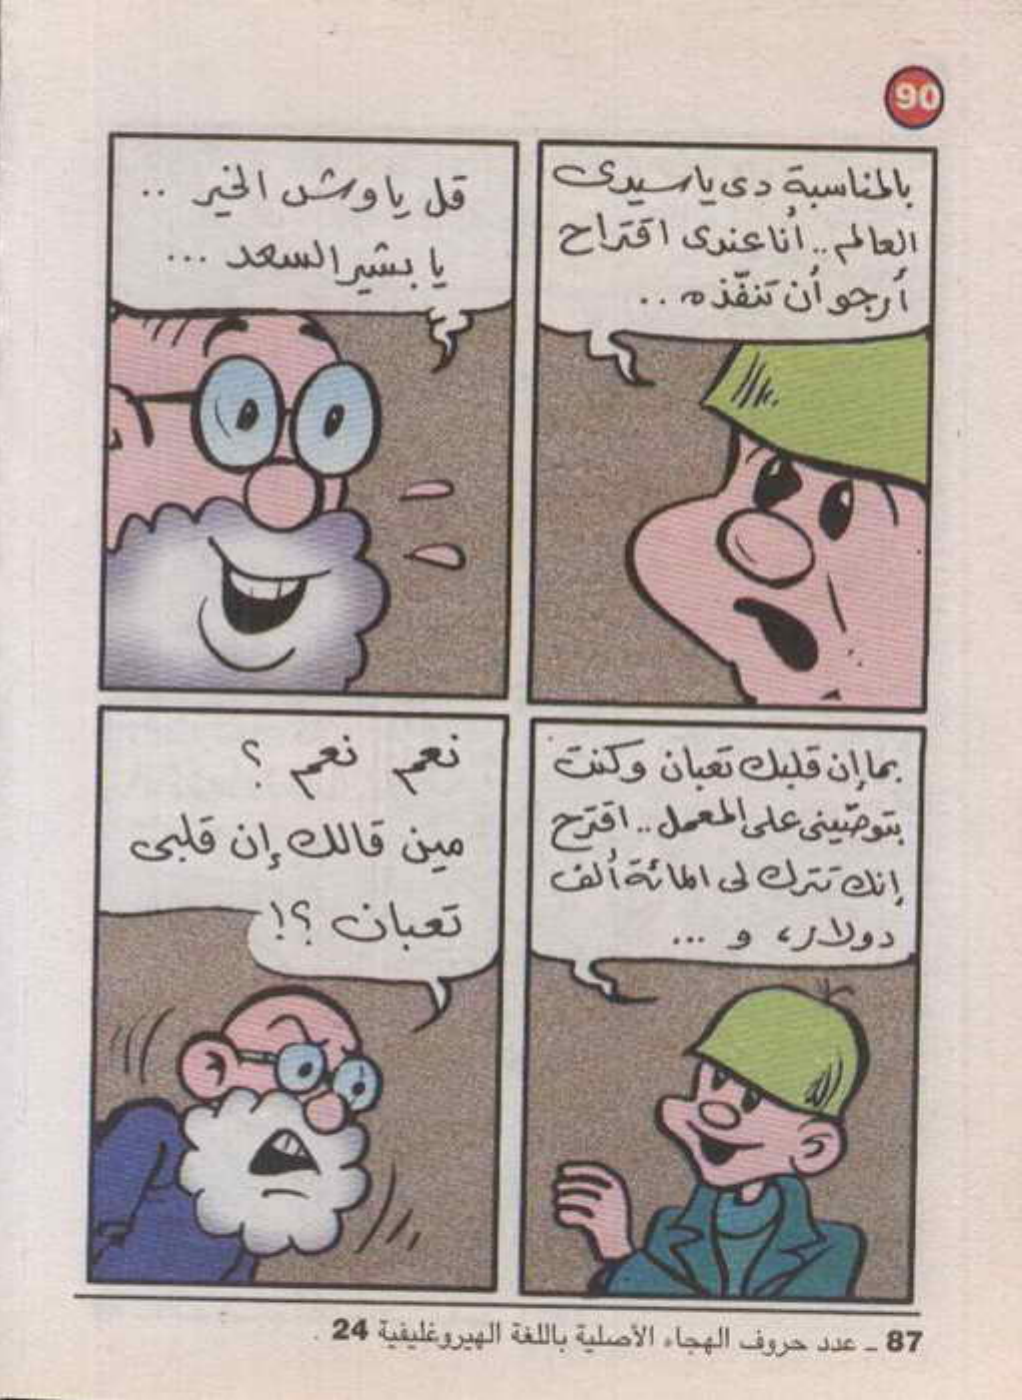 90
بالمناسبة دى ياسيدى
العالم.. أنا عندى اقتراح
أرجو أن تنفّذه..
قل يا وش الخير ..
يا بشير السعد ...
بما إن قلبك تعبان وكنت
بتوصّينى على المعمل.. اقترح
إنك تترك لى المائة ألف
دولار، و ...
نعم نعم ؟
مين قالك إن قلبى
تعبان ؟!
87 ـ عدد حروف الهجاء الأصلية باللغة الهيروغليفية 24 .